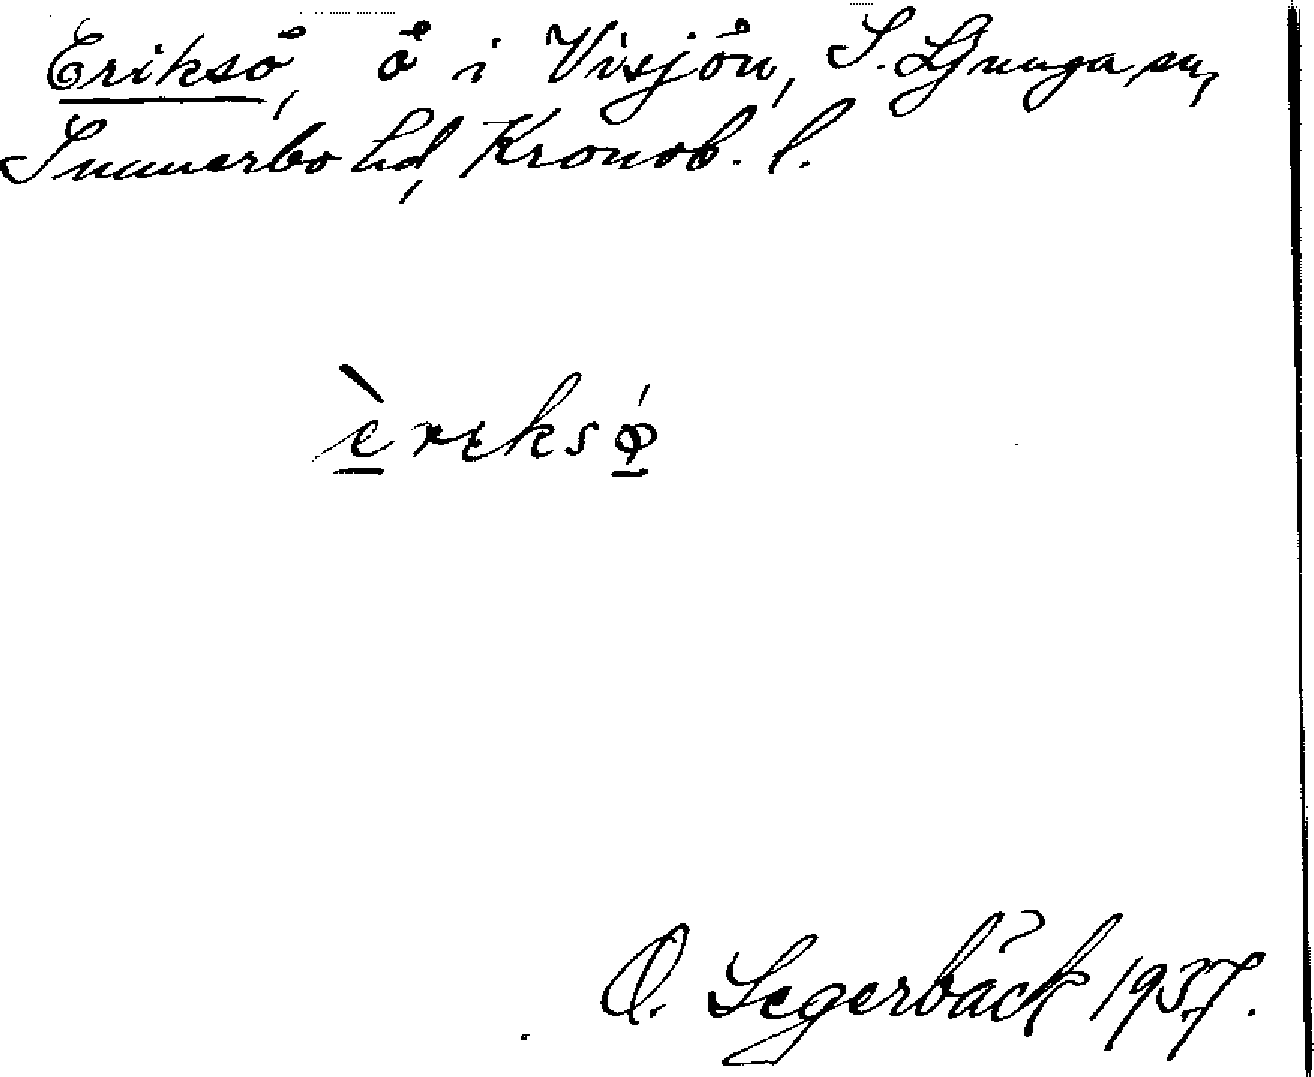 Eriksö, ö i Visjön, S. Ljunga sn,
Sunnerbo hd, Kronob. l.
èreksǿ
O. Segerbäck 1937.